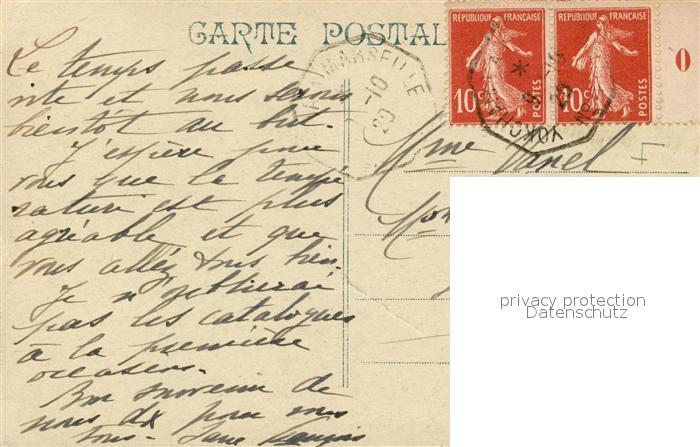 CARTE POSTAL
RÉPUBLIQUE FRANÇAISE
10c
POSTES
RÉPUBLIQUE FRANÇAISE
10c
POSTES
0
MARSEILLE
20 -10
YOKOHA
20
Le temps passe
vite et nous serons
bientôt au but.
J'espère pour
vous que la tempé
rature est plus
agréable et que
vous allez tous bien.
Je n'oublierai
pas les catalogues
à la première
occasion.
Bon souvenir de
nous dx pour vous
tous - Jane
Mme
privacy protection
Datenschutz